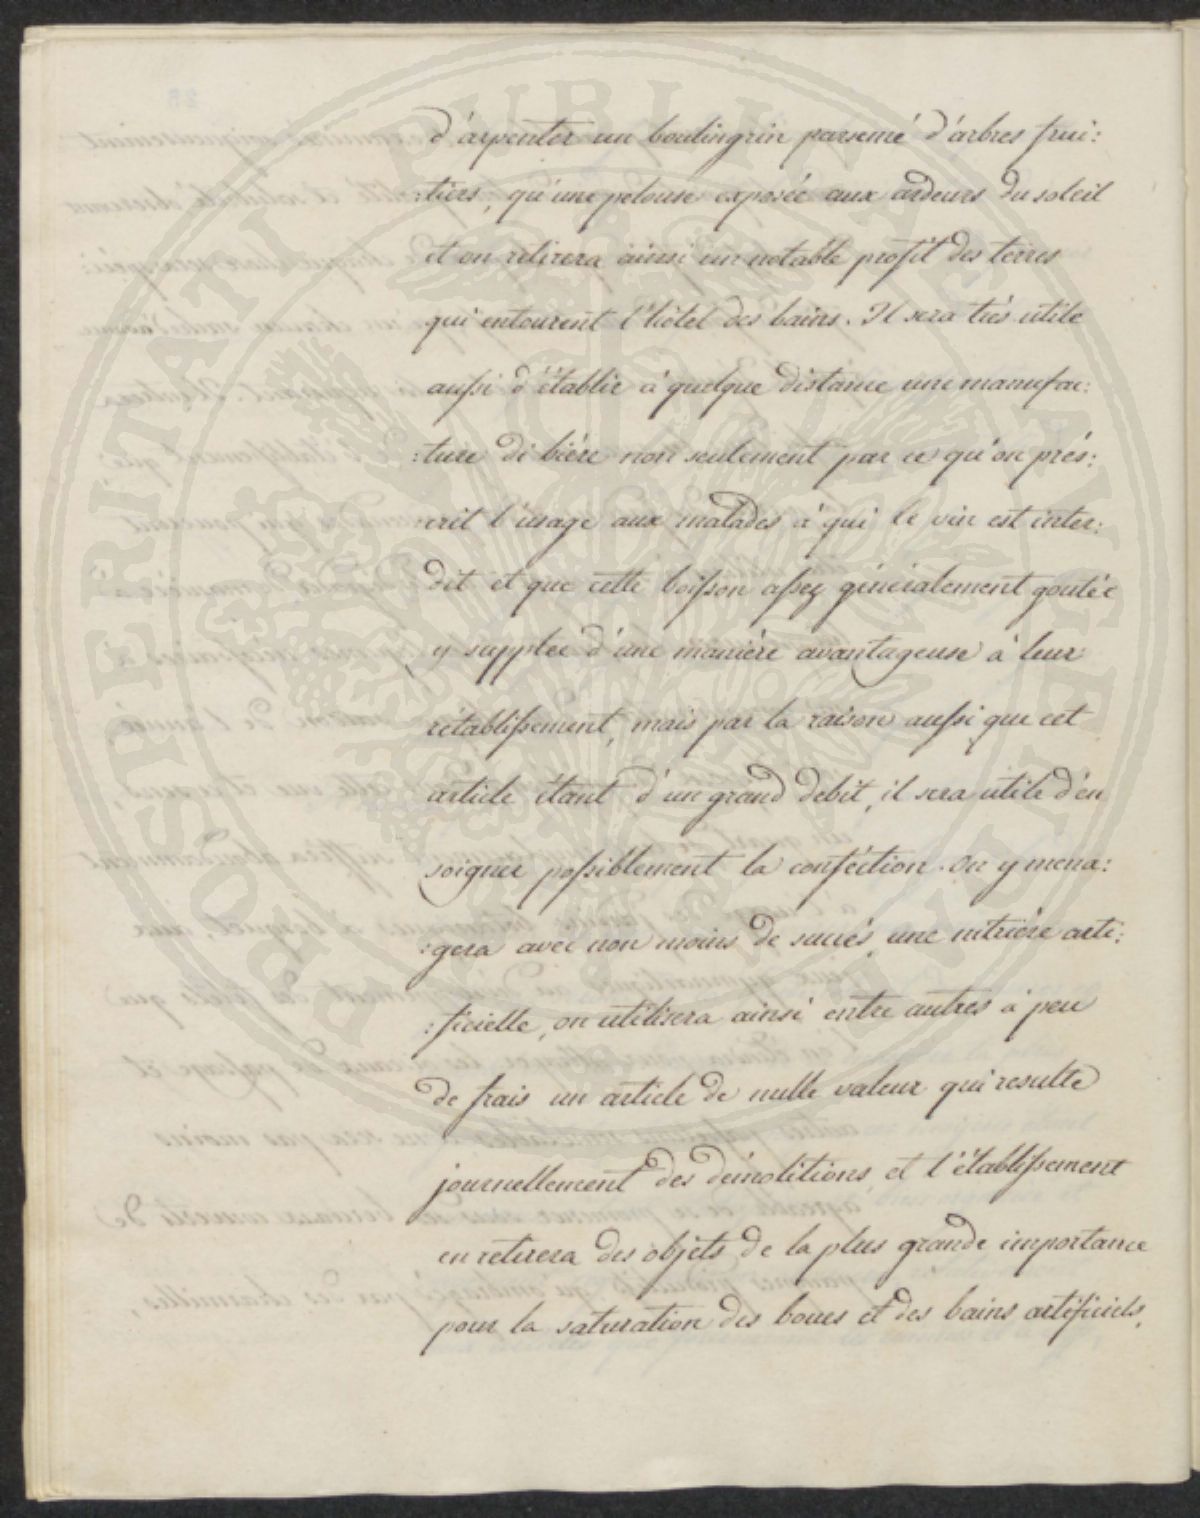 d'arpenter un boulingrin parsemé d'arbres frui:
:tiers, qu'une pelouse exposée aux ardeurs du soleil
et on retirera ainsi un notable profit des terres
qui entourent l'hôtel des bains. Il sera très utile
aussi d'établir à quelque distance une manufac:
:ture de bière non seulement par ce qu'on prés:
crit l'usage aux malades à qui le vin est inter:
dit et que cette boisson assez généralement goutée
y supplée d'une manière avantageuse à leur
rétablissement, mais par la raison aussi que cet
article étant d'un grand debit, il sera utile d'en
soigner possiblement la conféction. On y mena:
:gera avec non moins de succés, une nitrière arti:
:ficielle, on utilisera ainsi entre autres à peu
de frais un article de nulle valeur qui resulte
journellement des démolitions, et l'établissement
en retirera des objets de la plus grande importance
pour la saturation des boues et des bains artificiels,
PROSPERITATI PUBLICAE AVGENDAE